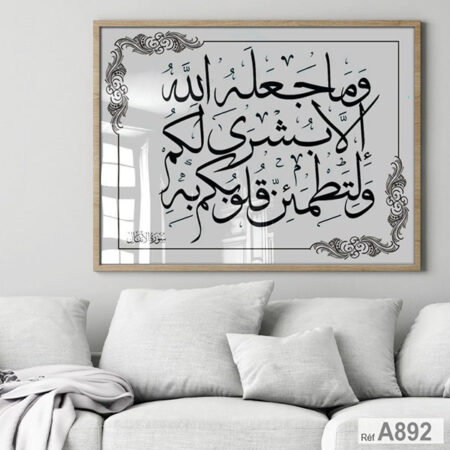 وَمَا جَعَلَهُ اللَّهُ
إِلَّا بُشْرَى لَكُمْ
وَلِتَطْمَئِنَّ قُلُوبُكُمْ بِهِ
سورة الأنفال
Réf A892